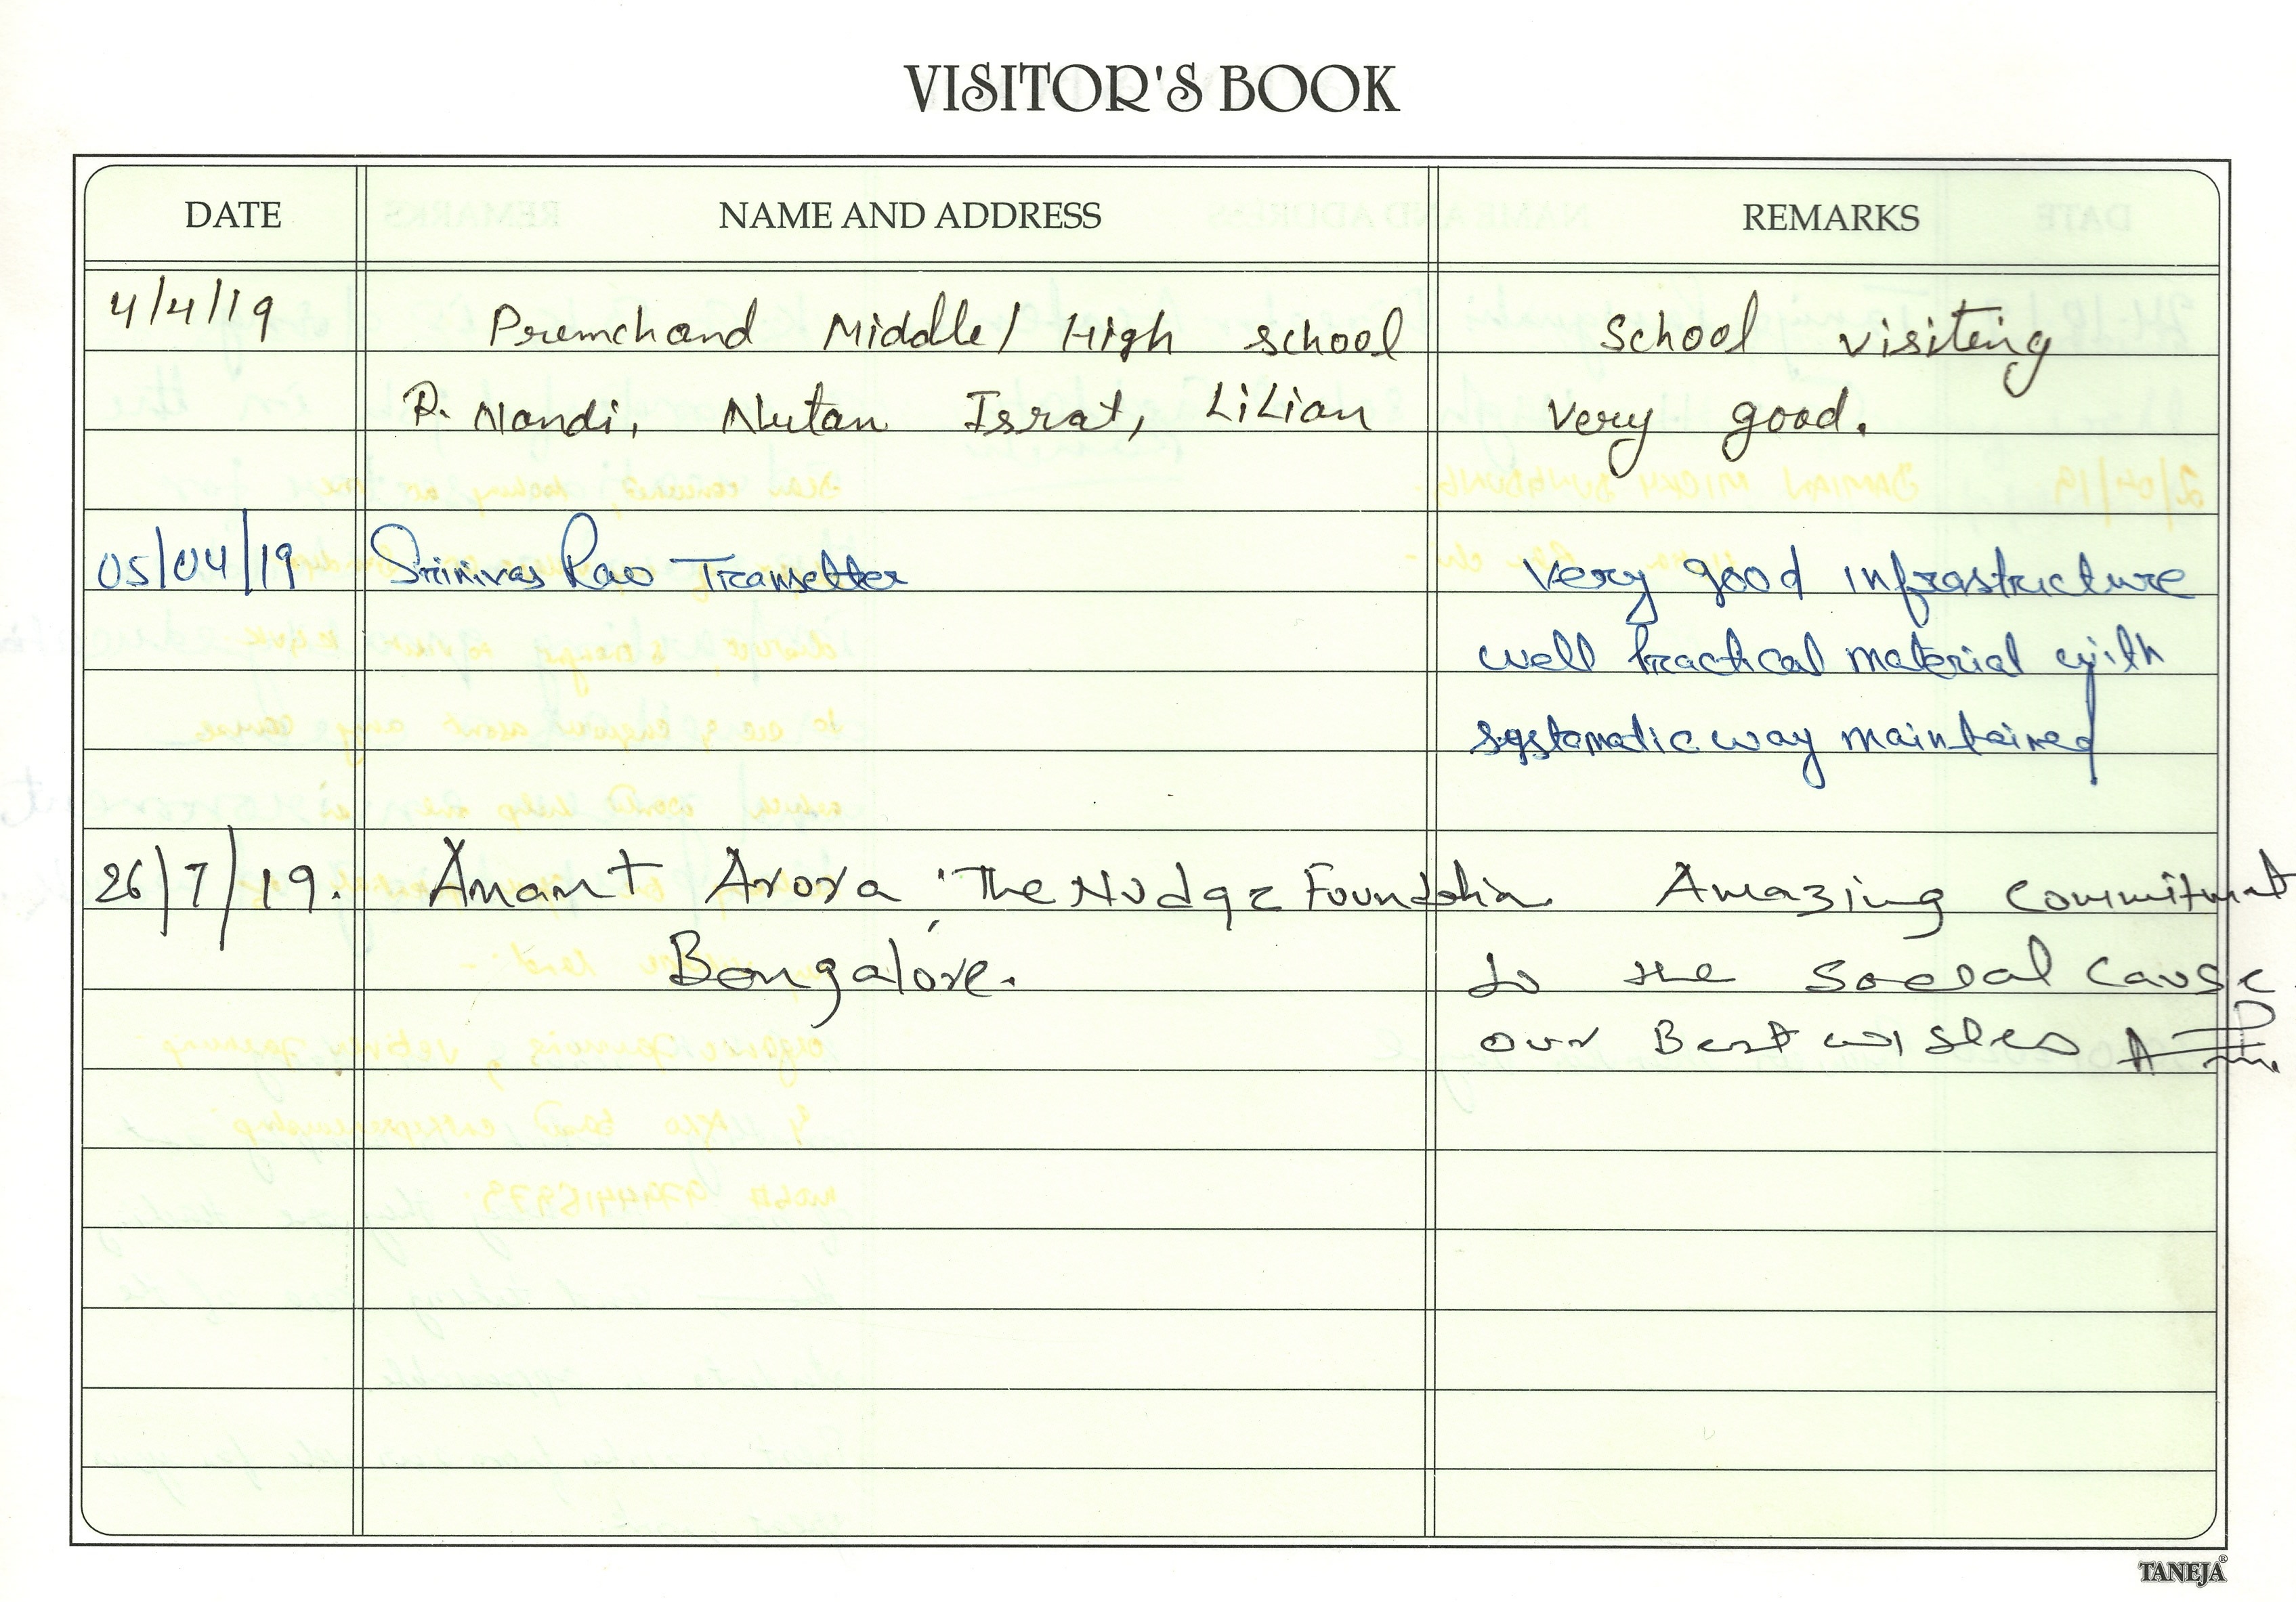 VISITOR'S BOOK
DATE NAME AND ADDRESS REMARKS
4/4/19 Premchand Middle/ High school School visiting
P. Nandi, Nutan Israt, LiLian very good.
05/04/19 Srinivas Rao Transetter Very good infrastructure
well Practical material with
systematic way maintained
26/7/19. Anant Arora, The Nudge Foundation. Amazing Commitment
Bangalore. to the social cause.
our Best wishes
TANEJA®